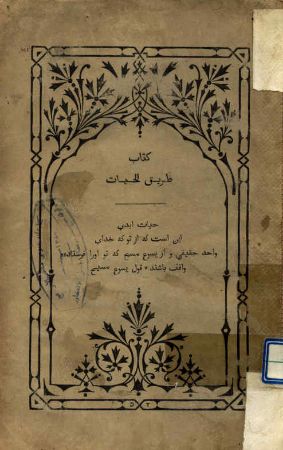 کتاب
طریق الحیات
حیات ابدی
این است که از تو که خدای
واحد حقیقی و از یسوع مسیح که تو اورا فرستادهٔ
واقف باشند * قول یسوع مسیح